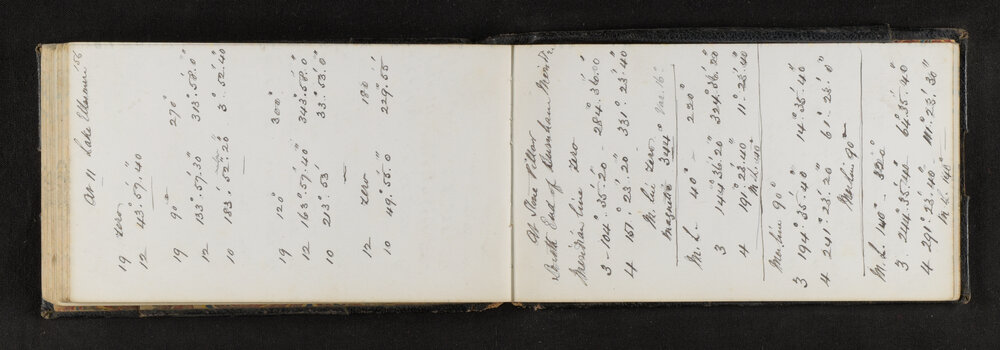 156
At 11 Lake Ellesmere
19 zero
12 43°.57'.40"
19 90° 270°
12 133°.57'.30" 313°.58'.0"
10 183°.52'.20" 3°.52'.40
19 120° 300°
12 163°.57'.40" 343°.58'.0
10 213°.53' 33°.53'.0"
12 zero 180
10 49°.55'.0" 229°.55'
At Stone Pillar
South End of Burnham
Meridian line zero
3 - 104°.35'.20 - 284°.36'.00"
4 151°.23'.20 331°.23'.40
M. line zero
magnetic 344° Var. 16°
M. L. 40° 220°
3 144°.36'.20" 324°.36'.20"
4 191°.23'.40 11°.23'.40
M. L. 40
Mer. line 90°
3 194°.35'.40" 14°.35'.40
4 241°.23'.20" 61°.23'.0"
Mer. line 90°
M. L. 140° - 320°
3. 244°.35'.40" 64°.35'.40
4 291°.23'.40 - 111°.23'.30"
M. L. 140°